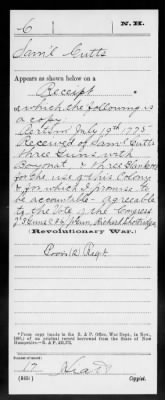 6 | N.H.
Sam'l Cutts
Appears as shown below on a
Receipt
of which the following is
a copy:
Portsmo July 19th 1775
Received of Saml Cutts
three Guns with
Bayonet &
for the use of this Colony
& for which I promise to
be accountable - agreeable
to the Vote of the Congress
(Revolutionary War.)
Poor's (2) Regt
*From copy (made in the R. & P. Office, War Dept., in Nov.,
of an original record borrowed from the State of New
Hampshire.—R. & P.
17
Copyist.